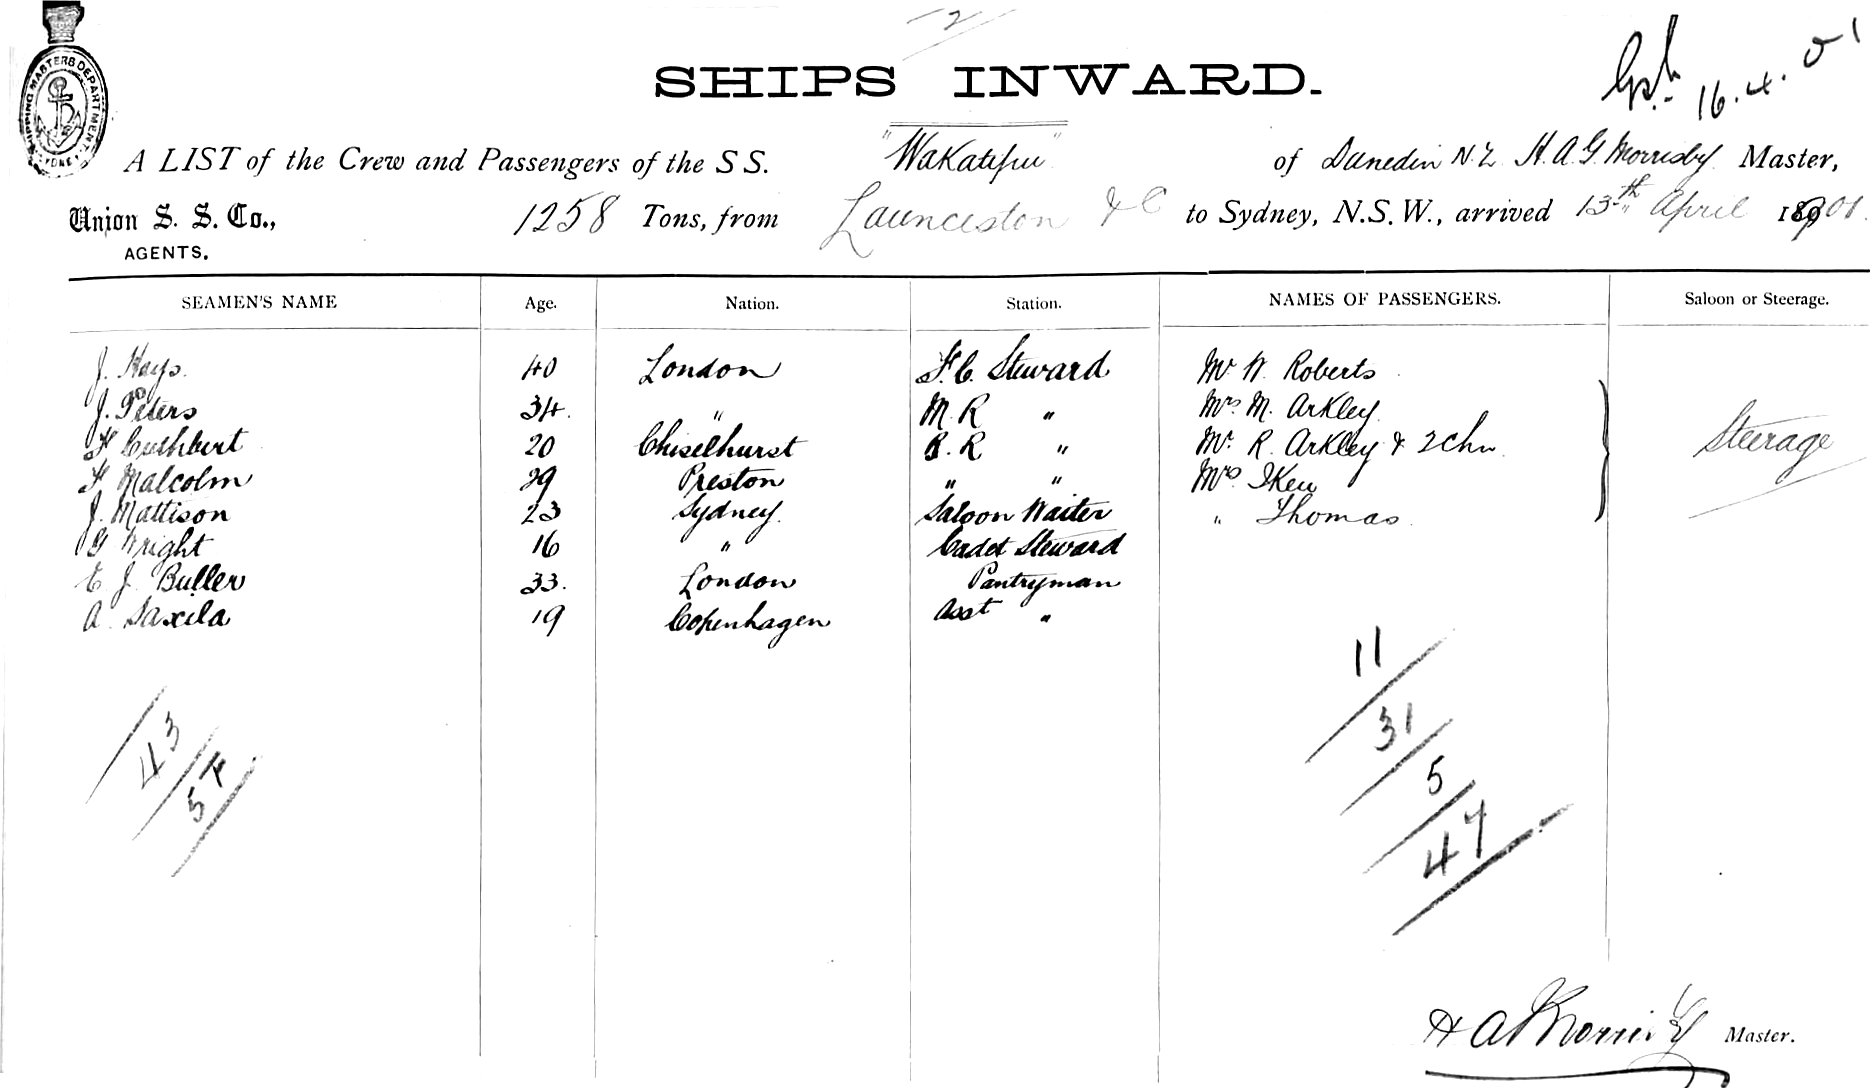 SHIPS INWARD.
16.4.01
SHIPPING MASTERS DEPARTMENT. SYDNEY
A LIST of the Crew and Passengers of the SS. "Wakatipu" of Dunedin N.Z. H. A. G. Morrisby Master,
Union S. S. Co., 1258 Tons, from Launceston &c to Sydney, N.S.W., arrived 13th April 1901.
AGENTS.
SEAMEN'S NAME Age. Nation. Station. NAMES OF PASSENGERS. Saloon or Steerage.
J. Hays. 40 London F.C. Steward Mr W. Roberts
J. Peters 34. " M.R " Mrs M. Arkley
F Cuthbert 20 Chiselhurst B.R " Mr. R. Arkley & 2 Chn Steerage
F Malcolm 29 Preston " " Mrs
J. Mattison 23 Sydney. Saloon Waiter " Thomas
G Wright 16 " Cadet Steward
E J Buller 33. London Pantryman
A. Saxila 19 Copenhagen Asst "
11
31
5
47
43
54
H A G Morrisby Master.